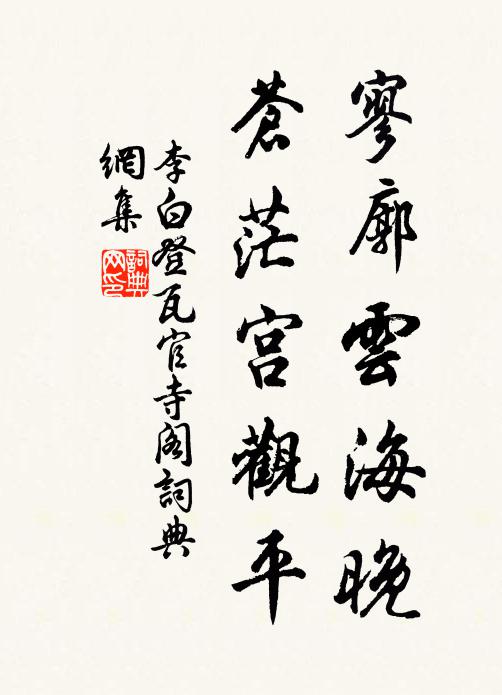 寥廓雲海晚
蒼茫宮觀平
李白登瓦官寺閣詞典
網集
詞典
网印